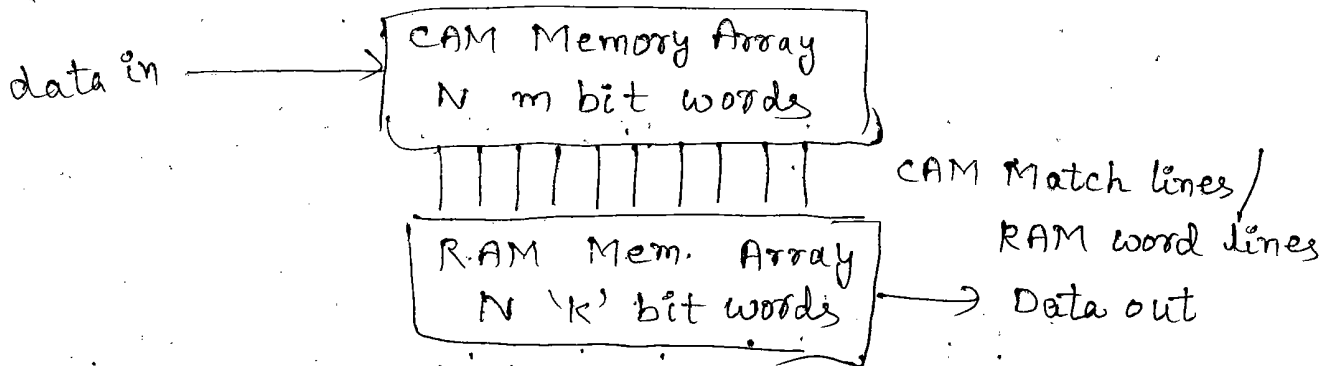 CAM Memory Array
data in
N m bit words
CAM Match lines/
RAM word lines
R.AM Mem. Array
N 'K' bit words
Data out